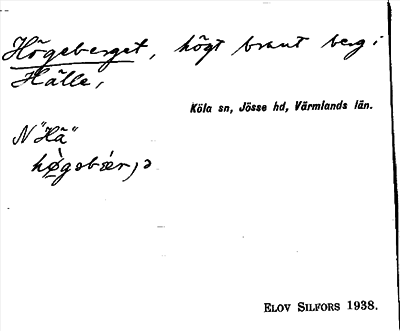 Högeberget, högt brant berg i
Hälle,
Köla sn, Jösse hd, Värmlands län.
N "Hä"
hø̀gəbǽr,ɔ
ELOV SILFORS 1938.